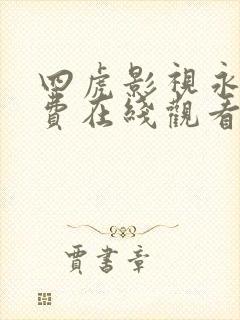 四虎影視永
費在綫觀看
賈書章